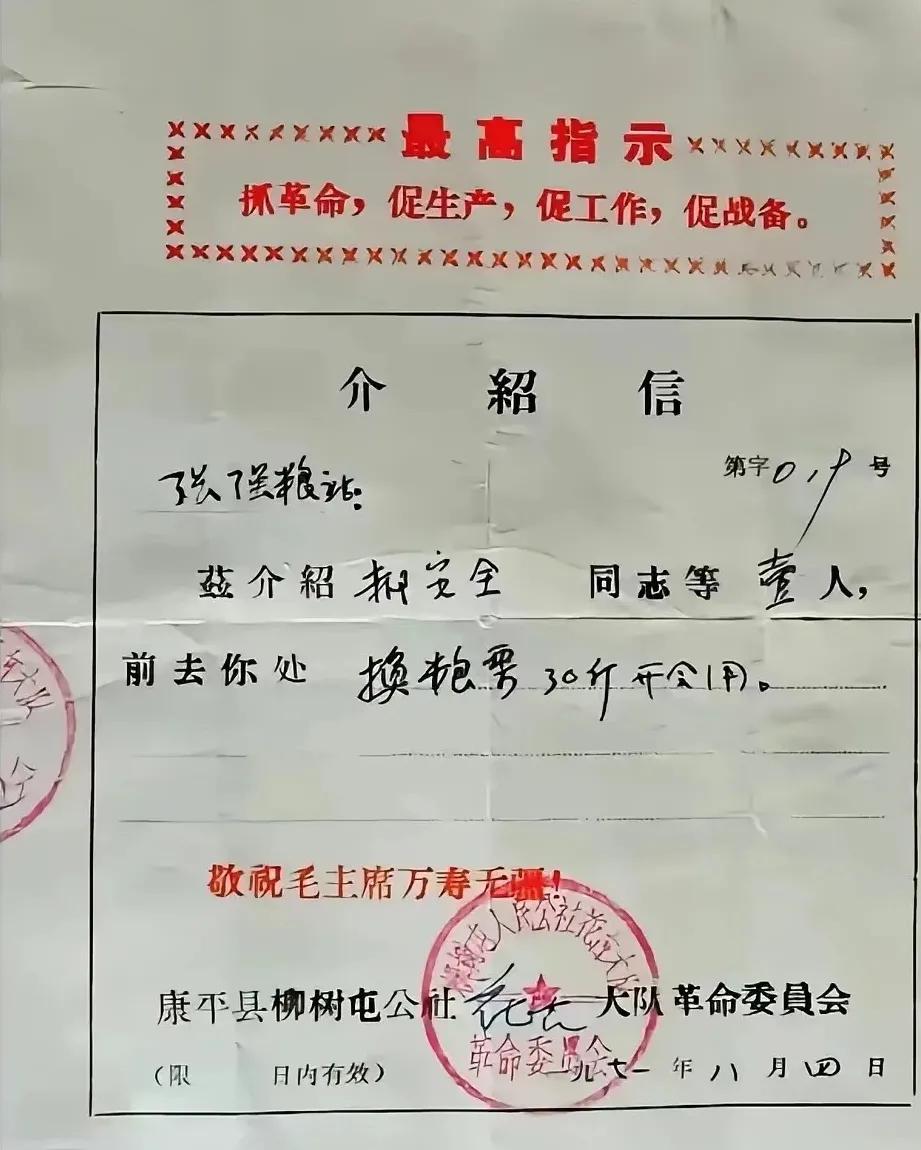 最高指示
抓革命，促生产，促工作，促战备。
介紹信
第字019号
张强粮站:
茲介紹 安全 同志等壹人，
前去你处 换粮票30斤开会用。
敬祝毛主席万寿无疆！
柳树屯人民公社花 大队
康平县柳树屯公社花 大队革命委員会
革命委员会
（限 日内有效） 一九七一年八月四日
大队